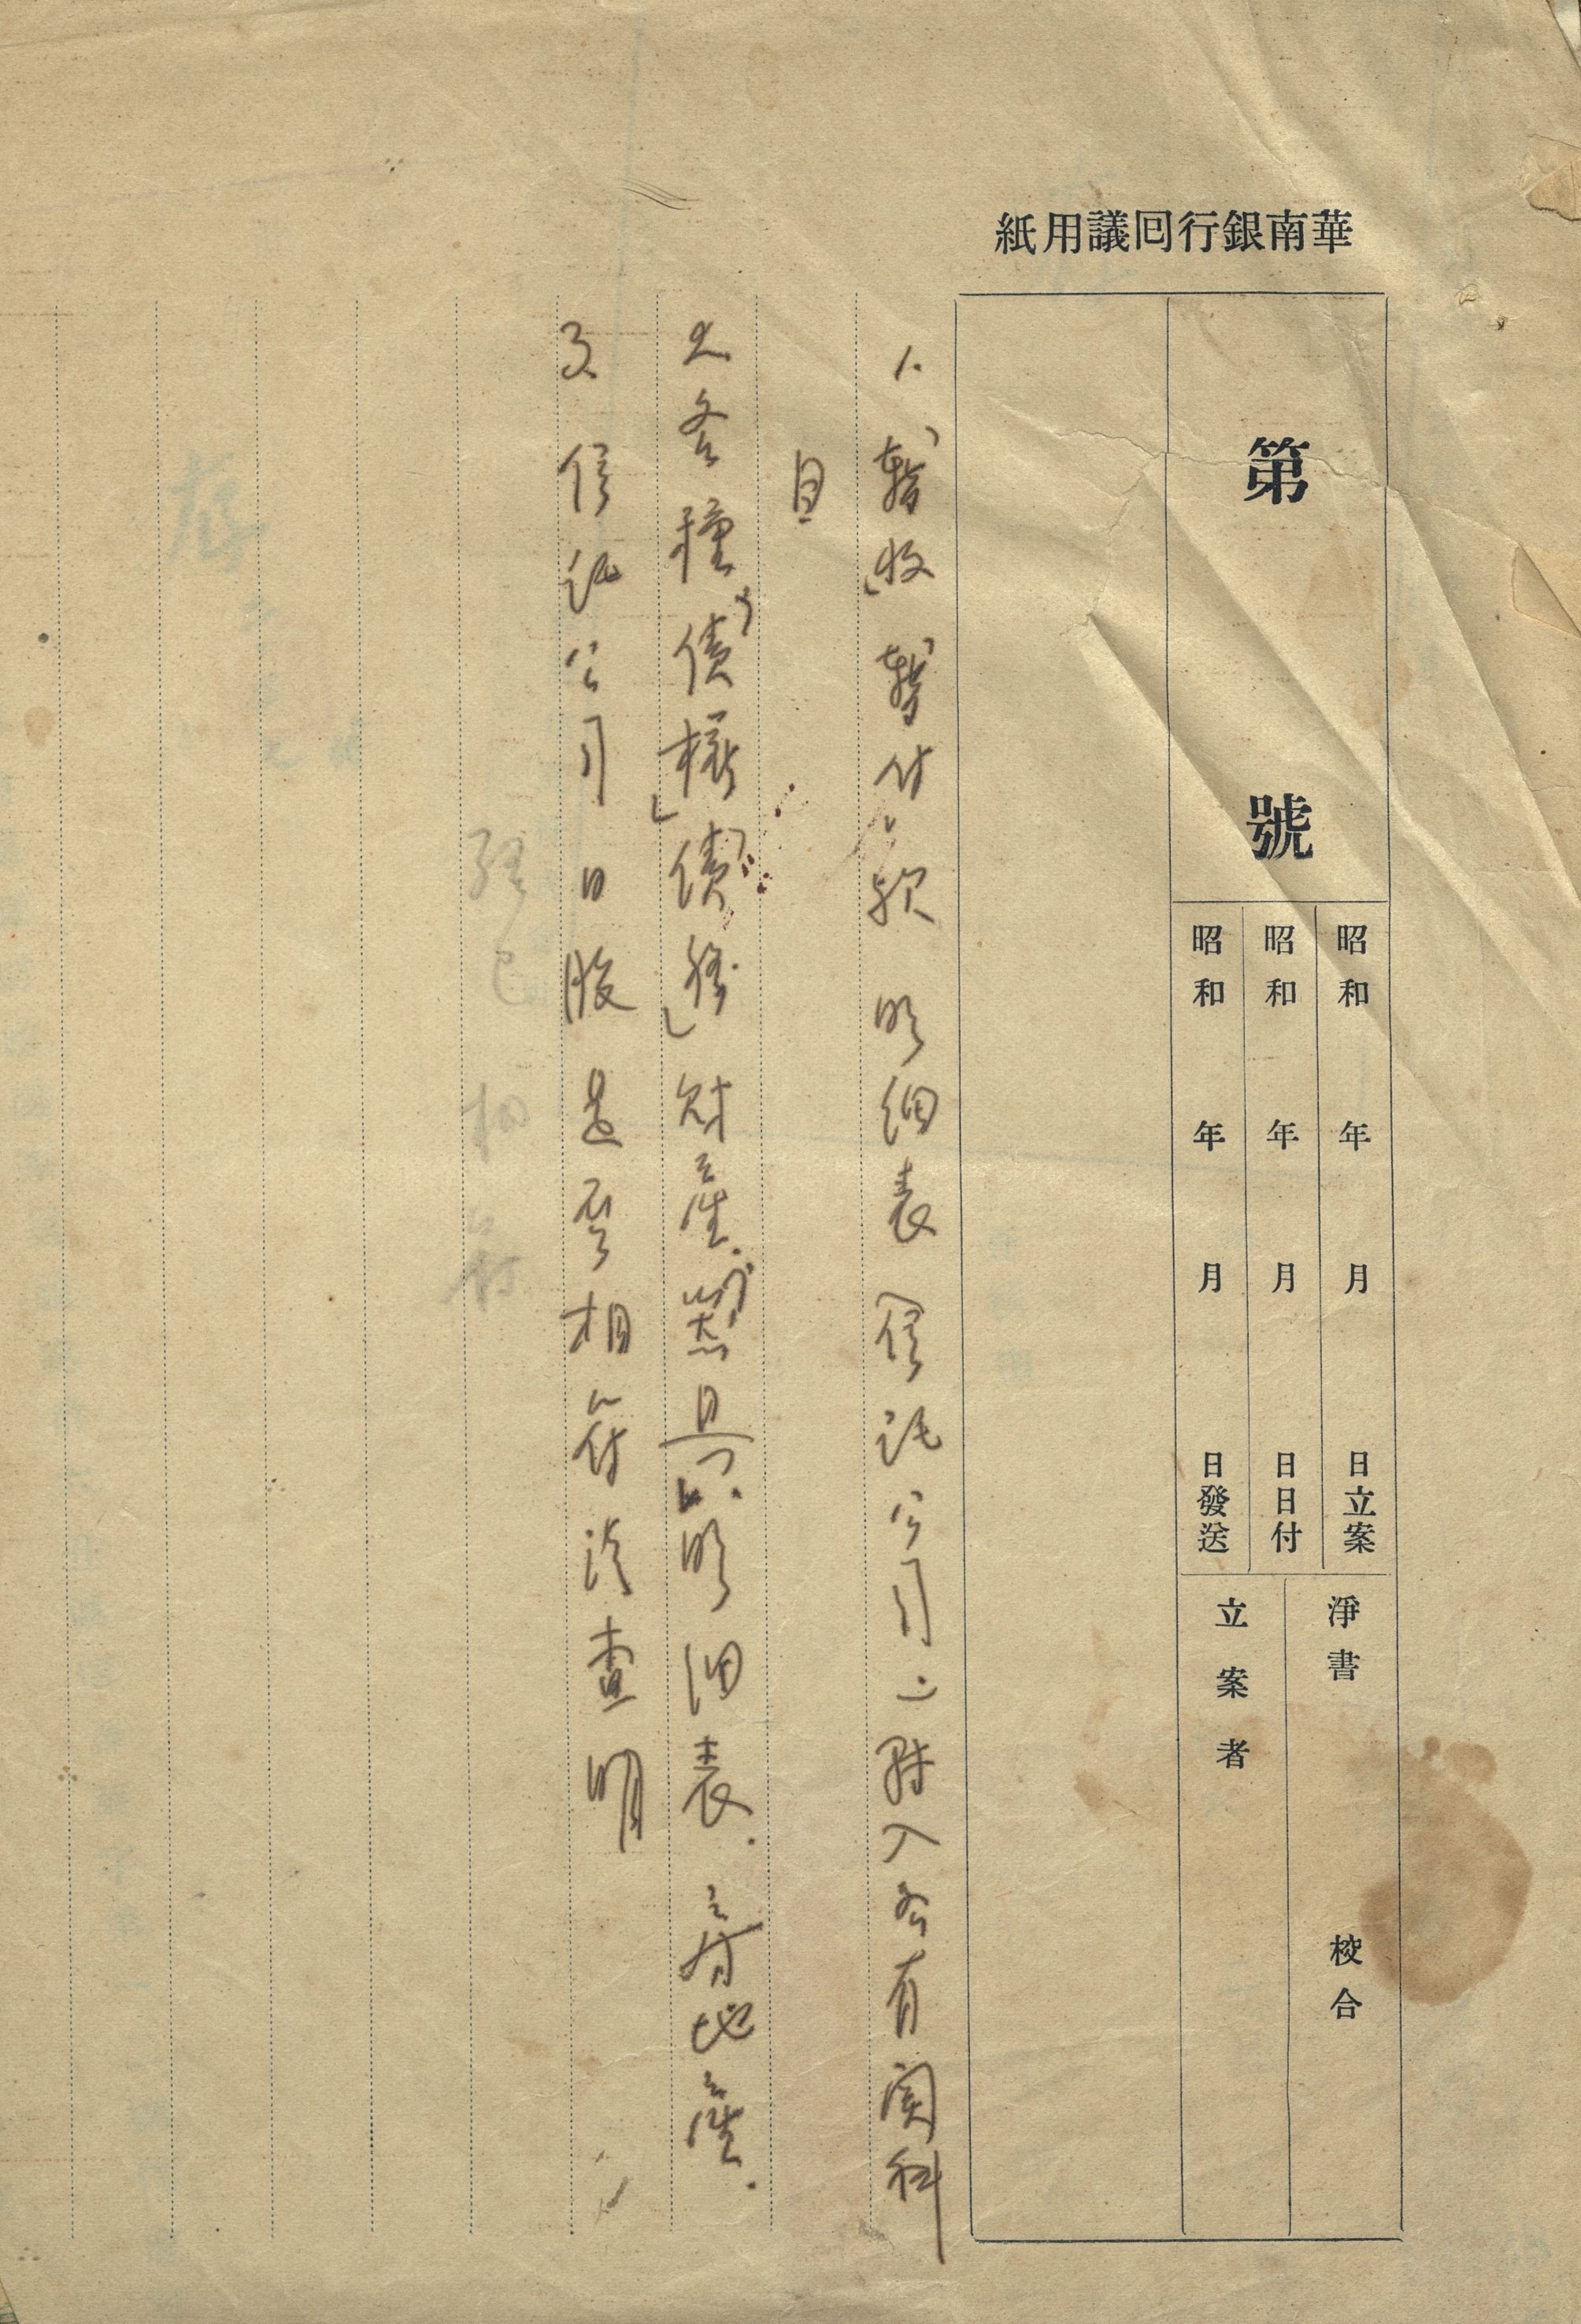 華南銀行囘議用紙
第　號
昭和　年　月　日立案
昭和　年　月　日日付
昭和　年　月　日發送
淨書　校合
立案者
1.「暫收」「暫付」款明細表（信託公司ニ引入各有関科
目
2.各種「債權」「債務」財產.「器具」明細表.房地產.
3.信託公司日股是否相符請查明